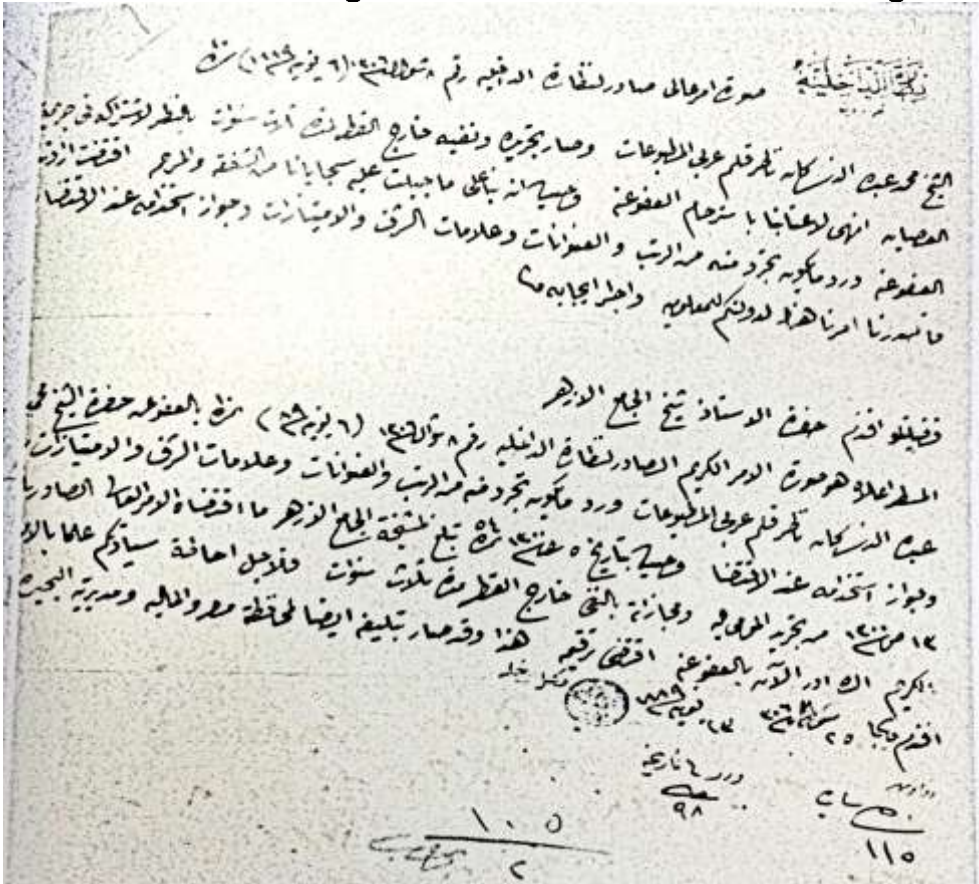 نظارة الداخلية
صورة امر عالى صادر لنظارة الداخلية رقم ٨ شوال سنة ١٣٠٦ (٦ يونيه سنة ١٨٨٩) نمرة
الشيخ محمد عبده الذى كان ناظر قلم عربى المطبوعات وصار تجريده ونفيه خارج القطر لمدة ثلاث سنوات بالنظر لاشتراكه فى جريمة
العصيان انهى لاعتابنا باسترحام العفو عنه وحيث انه بناء على ما جبلت عليه سجايانا من الشفقة والمرحمة اقتضت ارادتنا
العفو عنه ورد ما يكون تجرد منه من الرتب والعنوانات وعلامات الشرف والامتيازات وجواز استخدامه عند الاقتضا
فاصدرنا امرنا هذا لدولتكم للمعلومية واجرا ايجابه
فضيلتلو افندم حضرة الاستاذ شيخ الجامع الازهر
المسطر اعلاه هو صورة الامر الكريم الصادر لنظارة الداخلية رقم ٨ شوال سنة ١٣٠٦ (٦ يونيه سنة ٨٩) نمرة بالعفو عن حضرة الشيخ محمد
عبده الذى كان ناظر قلم عربى المطبوعات ورد ما يكون تجرد منه من الرتب والعنوانات وعلامات الشرف والامتيازات
وجواز استخدامه عند الاقتضا وحيث بتاريخ ٥ سنة ١٣٠٠ نمرة تبلغ لمشيخة الجامع الازهر ما اقتضاه الامر العالى الصادر
١٣ ص سنة ١٣٠٠ من تجريد المومى اليه ومجازاته بالنفى خارج القطر مدة ثلاث سنوات فلاجل احاطة سيادتكم علما بالامر
الكريم الصادر الآن بالعفو عنه اقتضى ترقيمه هذا وقد صار تبليغه ايضا لمحافظة مصر والمالية ومديرية البحيرة
افندم ٢٥ شوال سنة ٣٠٦ ٢٣ يونيه سنة ٨٨٩
وردت تاريخه
٩٨
١١٥
١٠٥
٢